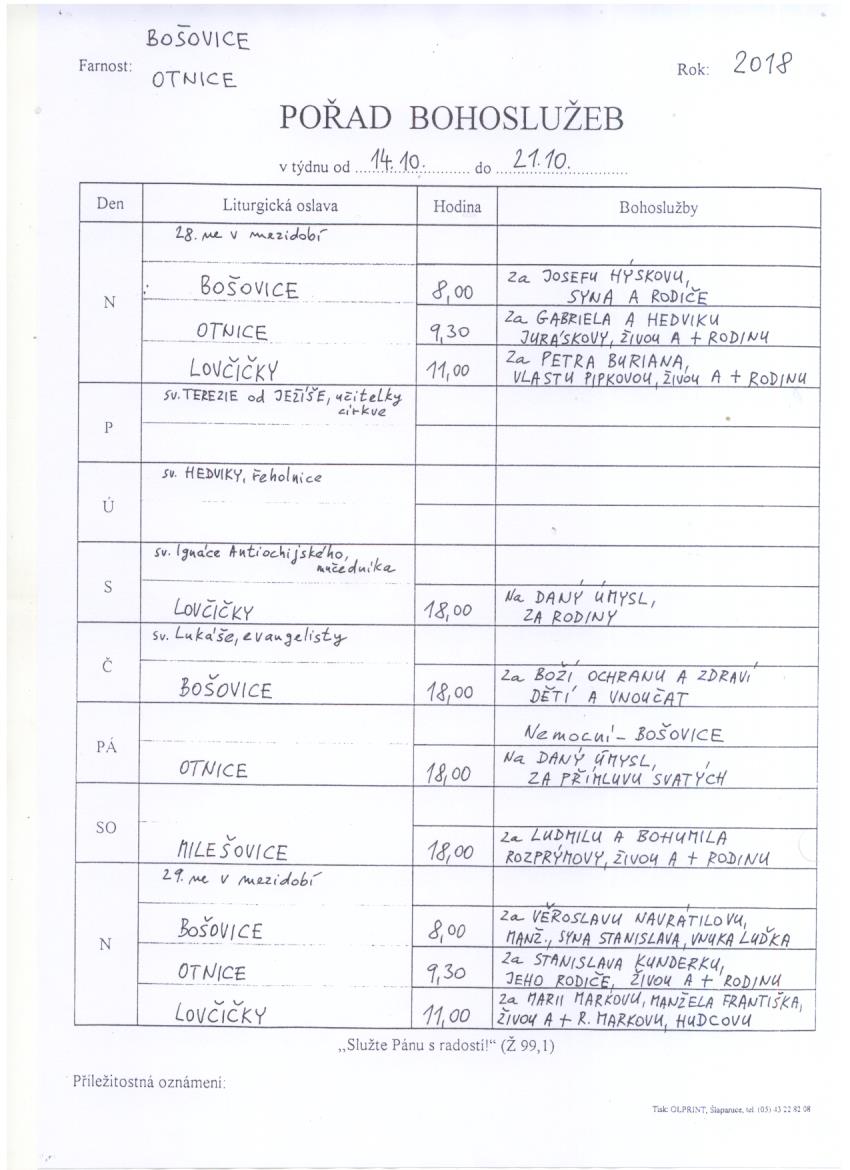 BOŠOVICE
Farnost:
OTNICE
Rok: 2018
POŘAD BOHOSLUŽEB
v týdnu od 14.10. do 21.10.
Den Liturgická oslava Hodina Bohoslužby
28. ne v mezidobí
N
BOŠOVICE 8,00 Za JOSEFU HÝSKOVU,
SYNA A RODIČE
OTNICE 9,30 Za GABRIELA A HEDVIKU
JURÁSKOVY, ŽIVOU A + RODINU
LOVČIČKY 11,00 Za PETRA BURIANA,
VLASTU PIPKOVOU, ŽIVOU A + RODINU
P
sv. TEREZIE od JEŽÍŠE, učitelky
církve
Ú
sv. HEDVIKY, řeholnice
S
sv. Ignáce Antiochijského,
mučedníka
LOVČIČKY 18,00 Na DANÝ ÚMYSL,
ZA RODINY
Č
sv. Lukáše, evangelisty
BOŠOVICE 18,00 Za BOŽÍ OCHRANU A ZDRAVÍ
DĚTÍ A VNOUČAT
PÁ
Nemocní - BOŠOVICE
OTNICE 18,00 Na DANÝ ÚMYSL,
ZA PŘÍMLUVU SVATÝCH
SO
MILEŠOVICE 18,00 Za LUDMILU A BOHUMILA
ROZPRÝMOVY, ŽIVOU A + RODINU
29. ne v mezidobí
N
BOŠOVICE 8,00 Za VĚROSLAVU NAVRÁTILOVU,
MANŽ., SYNA STANISLAVA, VNUKA LUĎKA
OTNICE 9,30 Za STANISLAVA KUNDERKU,
JEHO RODIČE, ŽIVOU A + RODINU
LOVČIČKY 11,00 Za MARII MARKOVU, MANŽELA FRANTIŠKA,
ŽIVOU A + R. MARKOVU, HUDCOVU
„Služte Pánu s radostí!“ (Ž 99,1)
Příležitostná oznámení:
Tisk: OLPRINT, Šlapanice, tel. (05) 43 22 82 08